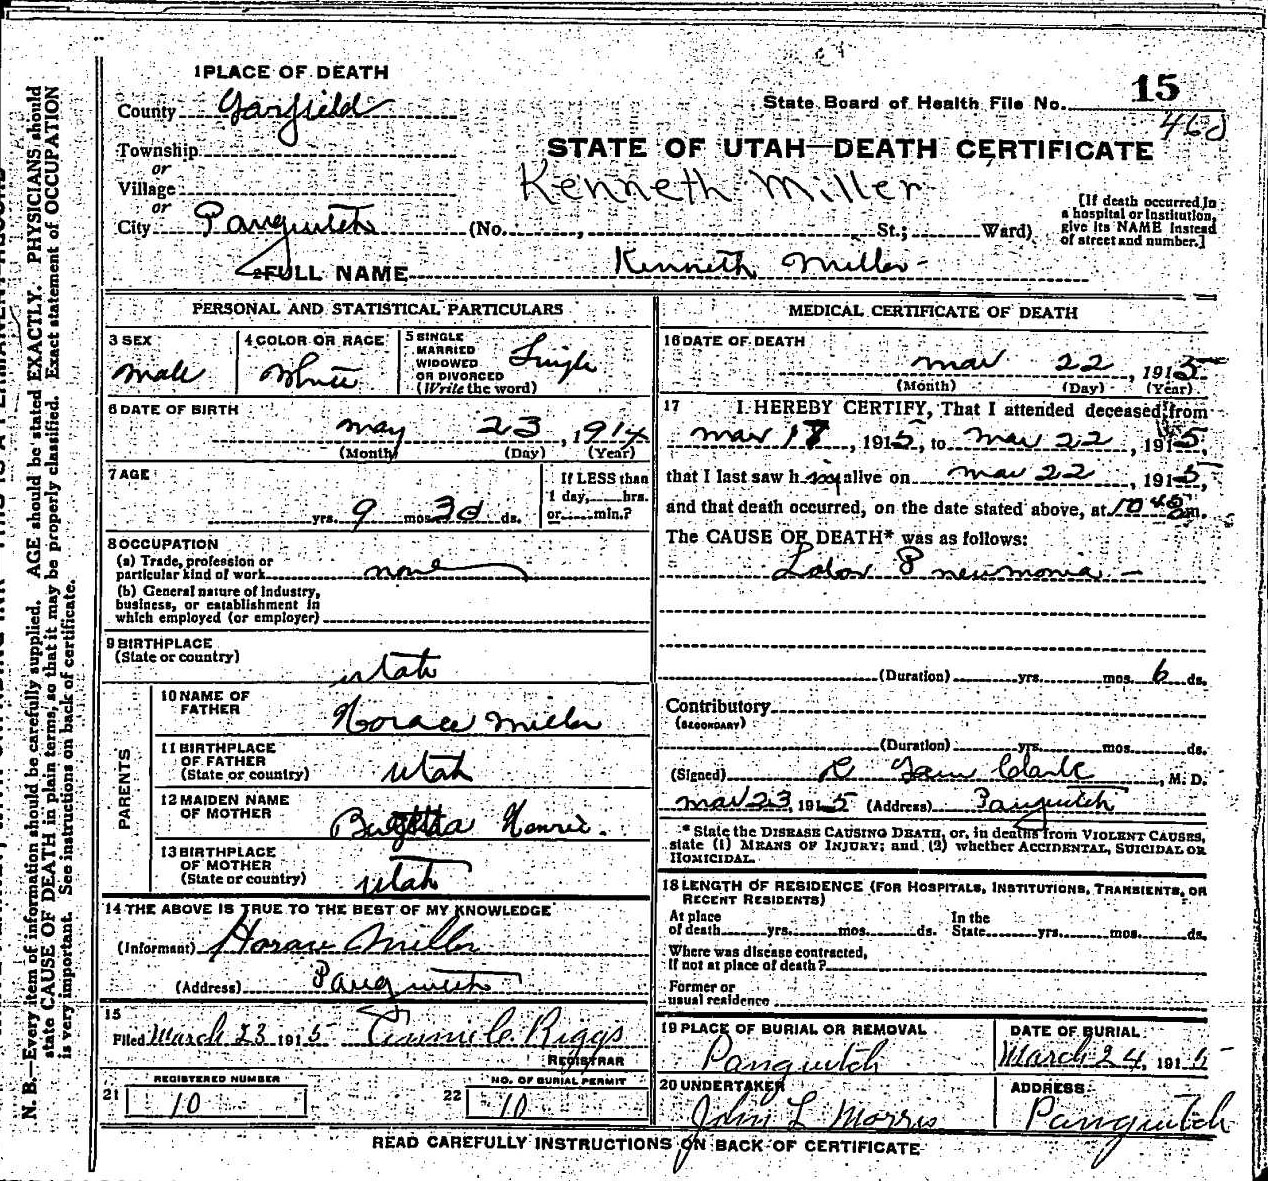 1 PLACE OF DEATH
County Garfield
Township
or
Village
or
City Panguitch (No. , St.; Ward)
[If death occurred in
a hospital or institution,
give its NAME instead
of street and number.]
State Board of Health File No. 15
460
STATE OF UTAH—DEATH CERTIFICATE
Kenneth Miller
2 FULL NAME Kenneth Miller
PERSONAL AND STATISTICAL PARTICULARS
3 SEX
Male
4 COLOR OR RACE
White
5 SINGLE
MARRIED
WIDOWED
OR DIVORCED
(Write the word)
Single
6 DATE OF BIRTH
May 23, 1914
(Month) (Day) (Year)
7 AGE
yrs. 9 mos. 30 ds.
If LESS than
1 day, hrs.
or min.?
8 OCCUPATION
(a) Trade, profession or
particular kind of work none
(b) General nature of Industry,
business, or establishment in
which employed (or employer)
9 BIRTHPLACE
(State or country)
Utah
PARENTS
10 NAME OF
FATHER
Horace Miller
11 BIRTHPLACE
OF FATHER
(State or country)
Utah
12 MAIDEN NAME
OF MOTHER
Henrie.
13 BIRTHPLACE
OF MOTHER
(State or country)
Utah
14 THE ABOVE IS TRUE TO THE BEST OF MY KNOWLEDGE
(Informant) Horace Miller
(Address) Panguitch
15
Filed March 23 1915 Riggs
REGISTRAR
REGISTERED NUMBER
21 10
NO. OF BURIAL PERMIT
22 10
MEDICAL CERTIFICATE OF DEATH
16 DATE OF DEATH
Mar 22, 1915
(Month) (Day) (Year)
17 I HEREBY CERTIFY, That I attended deceased from
Mar 17, 1915, to Mar 22, 1915,
that I last saw him alive on Mar 22, 1915,
and that death occurred, on the date stated above, at 10 45 m.
The CAUSE OF DEATH* was as follows:
Lobar Pneumonia
(Duration) yrs. mos. 6 ds.
Contributory
(SECONDARY)
(Duration) yrs. mos. ds.
(Signed) R Clark, M. D.
Mar 23, 1915 (Address) Panguitch
* State the DISEASE CAUSING DEATH, or, in deaths from VIOLENT CAUSES,
state (1) MEANS OF INJURY; and (2) whether ACCIDENTAL, SUICIDAL OR
HOMICIDAL.
18 LENGTH OF RESIDENCE (FOR HOSPITALS, INSTITUTIONS, TRANSIENTS, OR
RECENT RESIDENTS)
At place
of death yrs. mos. ds.
In the
State yrs. mos. ds.
Where was disease contracted,
If not at place of death?
Former or
usual residence
19 PLACE OF BURIAL OR REMOVAL
Panguitch
DATE OF BURIAL
March 24, 1915
20 UNDERTAKER
John L Morris
ADDRESS
Panguitch
READ CAREFULLY INSTRUCTIONS ON BACK OF CERTIFICATE
N. B.—Every item of information should be carefully supplied. AGE should be stated EXACTLY. PHYSICIANS should
state CAUSE OF DEATH in plain terms, so that it may be properly classified. Exact statement of OCCUPATION
is very important. See instructions on back of certificate.